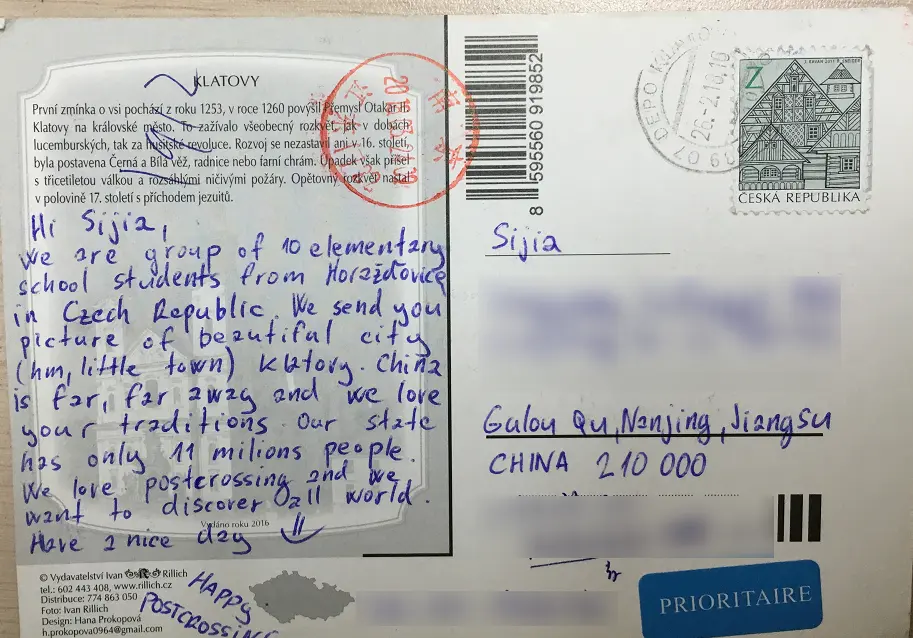 KLATOVY
První zmínka o vsi pochází z roku 1253, v roce 1260 povýšil Přemysl Otakar II.
Klatovy na královské město. To zažívalo všeobecný rozkvět, jak v dobách
lucemburských, tak za husitské revoluce. Rozvoj se nezastavil ani v 16. století,
byla postavena Černá a Bílá věž, radnice nebo farní chrám. Úpadek však přišel
s třicetiletou válkou a rozsáhlými ničivými požáry. Opětovný rozkvět nastal
v polovině 17. století s příchodem jezuitů.
Hi Sijia,
we are group of 10 elementary
school students from Horažďovice
in Czech Republic. We send you
picture of beautiful city
(hm, little town) Klatovy. China
is far, far away and we love
your traditions. Our state
has only 11 milions people.
We love postcrossing and we
want to discover all world.
Have a nice day
Vydáno roku 2016
HAPPY
POSTCROSSING
© Vydavatelství Ivan Rillich
tel.: 602 443 408, www.rillich.cz
Distribuce: 774 863 050
Foto: Ivan Rillich
Design: Hana Prokopová
h.prokopova0964@gmail.com
8 595560 919852
DEPO
Z
ČESKÁ REPUBLIKA
Sijia
Gulou Qu, Nanjing, Jiangsu
CHINA 210 000
PRIORITAIRE